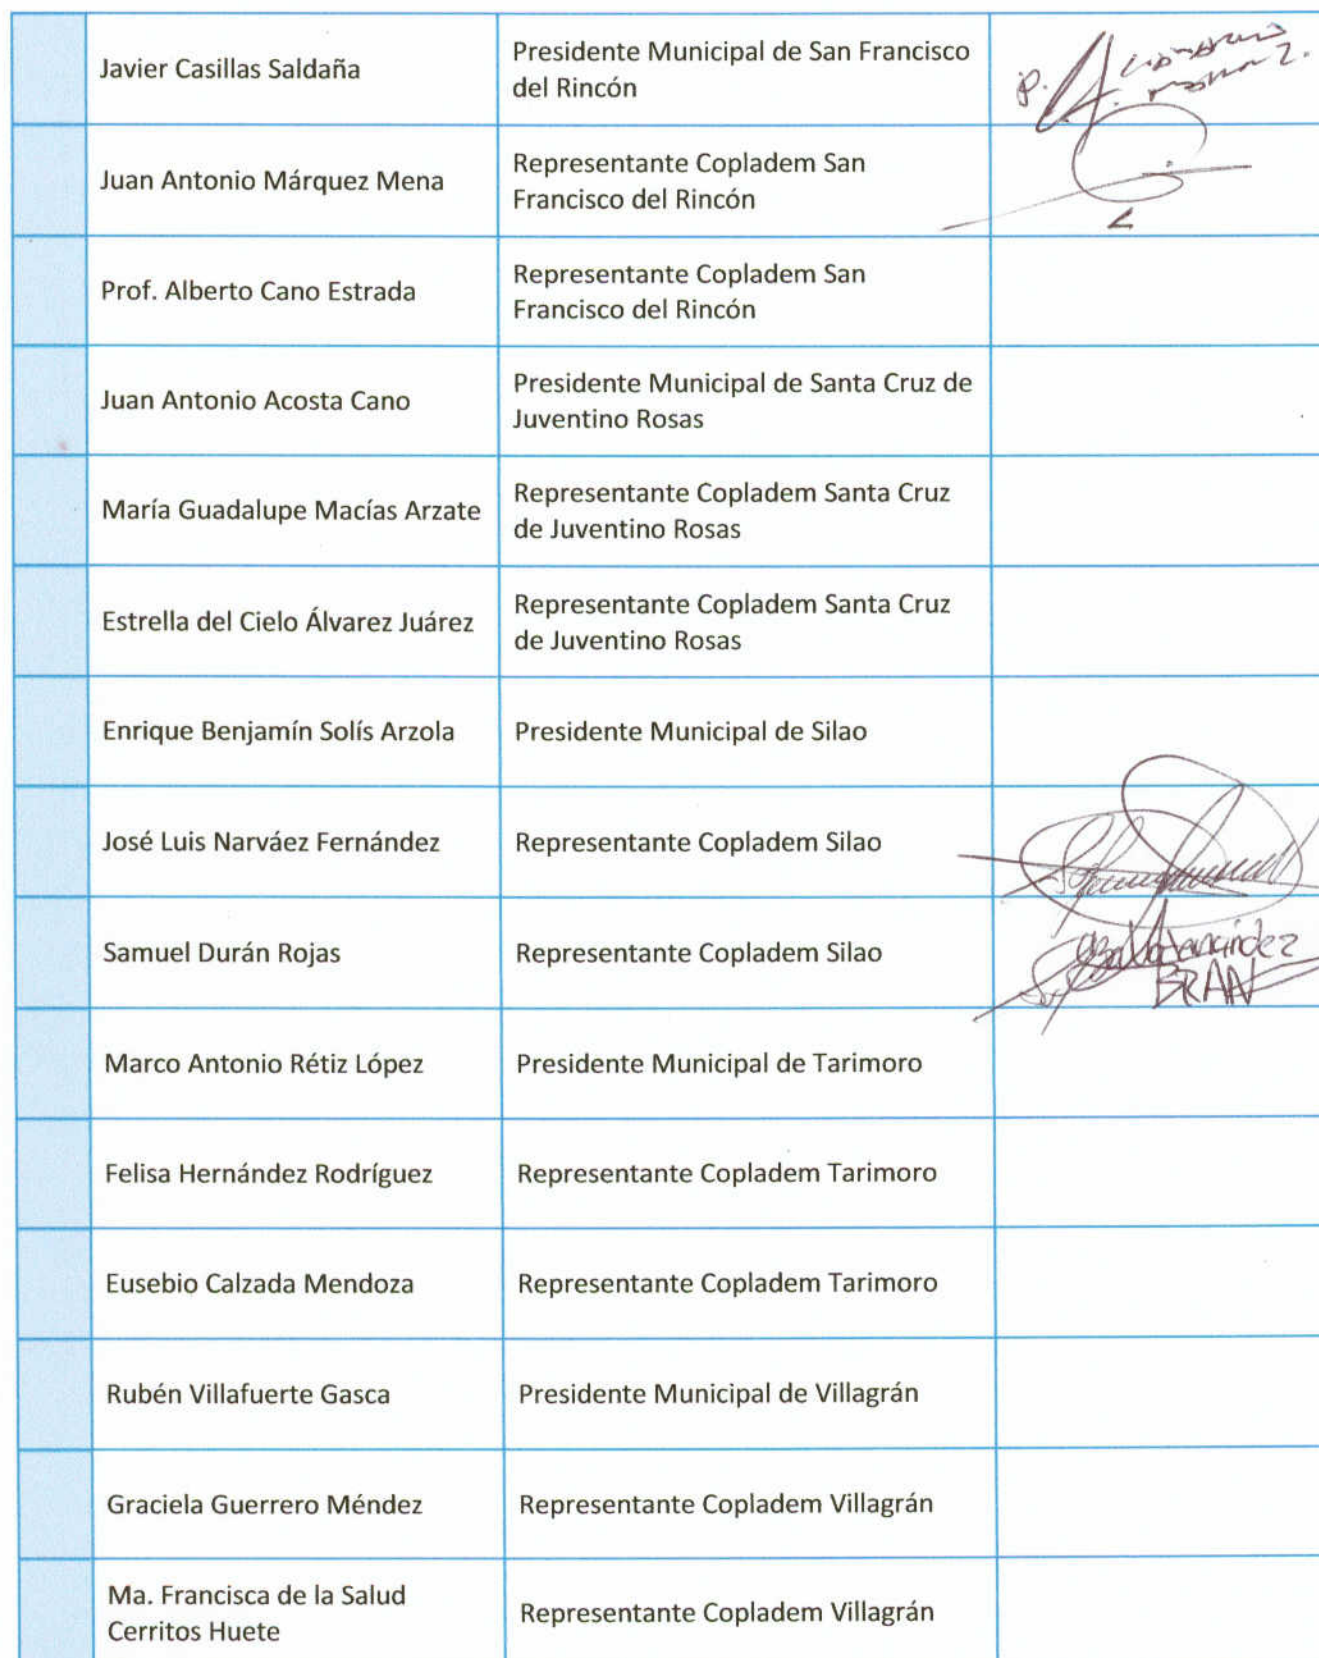 Javier Casillas Saldaña
Presidente Municipal de San Francisco
del Rincón
P.
Juan Antonio Márquez Mena
Representante Copladem San
Francisco del Rincón
Prof. Alberto Cano Estrada
Representante Copladem San
Francisco del Rincón
Juan Antonio Acosta Cano
Presidente Municipal de Santa Cruz de
Juventino Rosas
María Guadalupe Macías Arzate
Representante Copladem Santa Cruz
de Juventino Rosas
Estrella del Cielo Álvarez Juárez
Representante Copladem Santa Cruz
de Juventino Rosas
Enrique Benjamín Solís Arzola
Presidente Municipal de Silao
José Luis Narváez Fernández
Representante Copladem Silao
Samuel Durán Rojas
Representante Copladem Silao
BRAN
Marco Antonio Rétiz López
Presidente Municipal de Tarimoro
Felisa Hernández Rodríguez
Representante Copladem Tarimoro
Eusebio Calzada Mendoza
Representante Copladem Tarimoro
Rubén Villafuerte Gasca
Presidente Municipal de Villagrán
Graciela Guerrero Méndez
Representante Copladem Villagrán
Ma. Francisca de la Salud
Cerritos Huete
Representante Copladem Villagrán